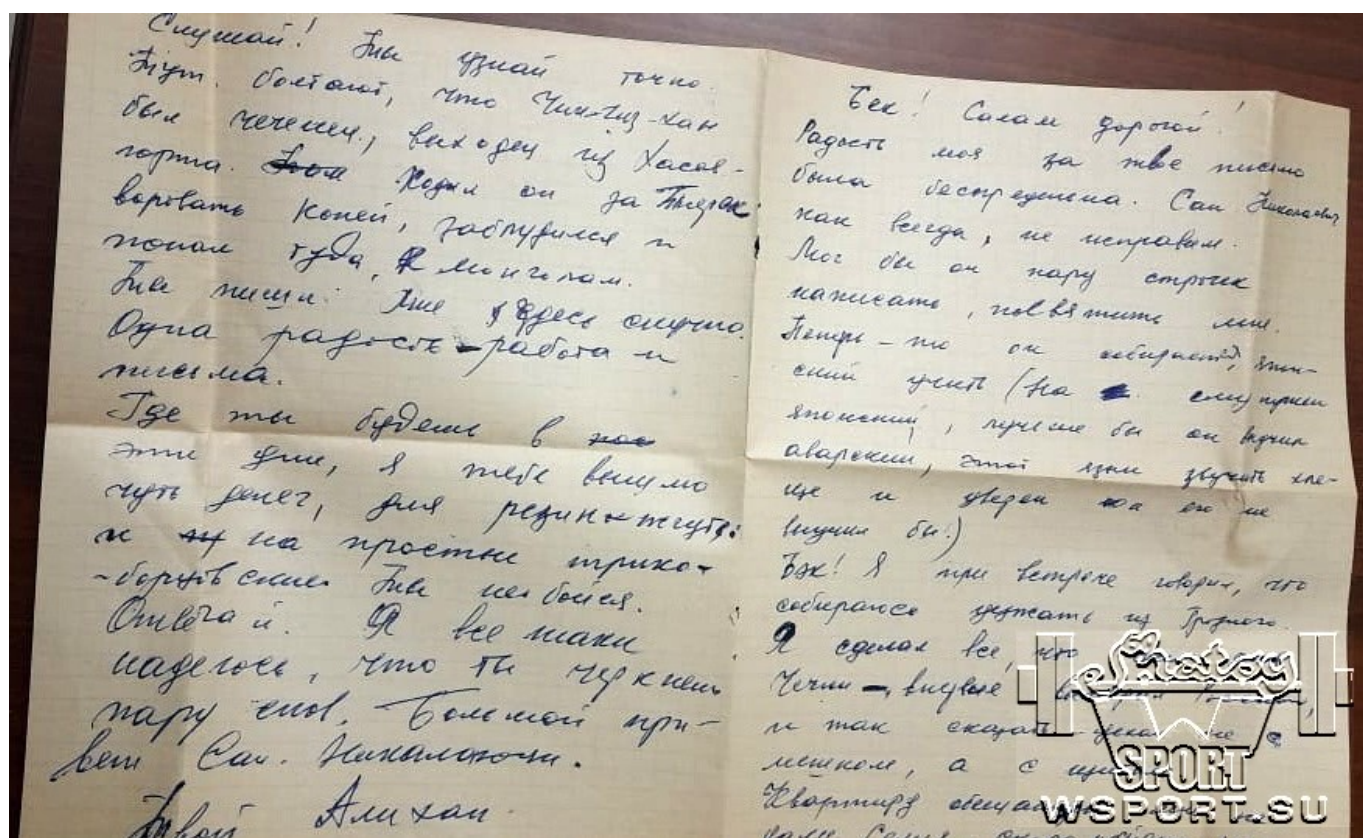 Слушай! Ты узнай точно.
Тут болтают, что Чингиз-хан
был чеченец, выходец из Хасав-
юрта. Ходил он за Терек
воровать коней, заблудился и
попал туда, к монголам.
Ты пиши. Мне здесь скучно.
Одна радость – работа и
письма.
Где ты будешь в
эти дни, я тебе вышлю
чуть денег, для резин-жгута
и на простые трико-
-борцовские. Ты не бойся.
Отвечай. Я все таки
надеюсь, что ты черкнешь
пару слов. Большой при-
вет Сан. Николаючи.
Твой Алихан.
Бек! Салам дорогой!
Радость моя за твое письмо
была беспредельна. Сан Николаевич,
как всегда, не исправим.
Мог бы он пару строчек
написать, посвятить мне.
Теперь-то он собирается, япон-
ский учить (На нужен
японский, лучше бы он выучил
аварский, этот язык звучит хле-
ще и уверен он его не
выучил бы!)
Бэк! Я при встрече говорил, что
собираюсь уезжать из Грозного.
Я сделал все, что
Чечни –, впервые
и так сказать не с
мешком, а с
Квартиру
Shatoy
SPORT
WSPORT.SU